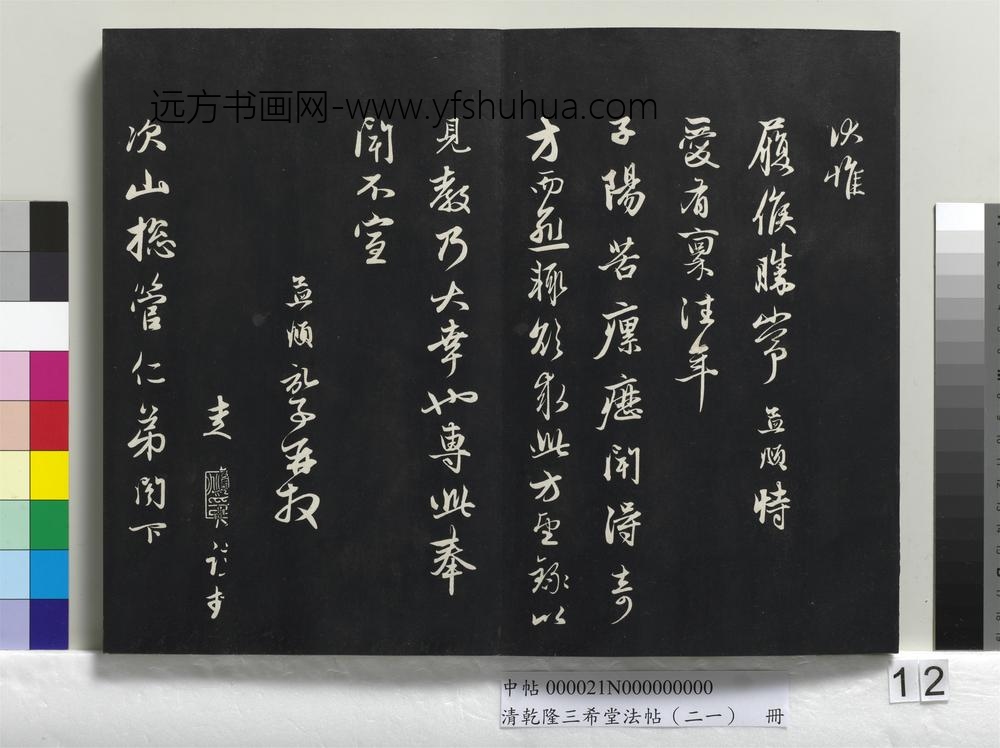 伏惟
履候勝常孟頫特
愛有稟注年
子陽苦瘰癧聞得奇
方而愈輒欲求此方望錄以
見教乃大幸也專此奉
聞不宣
孟頫於子再拜
次山總管仁弟閣下
远方书画网-www.yfshuhua.com
中帖 000021N000000000
清乾隆三希堂法帖(二一) 冊
12